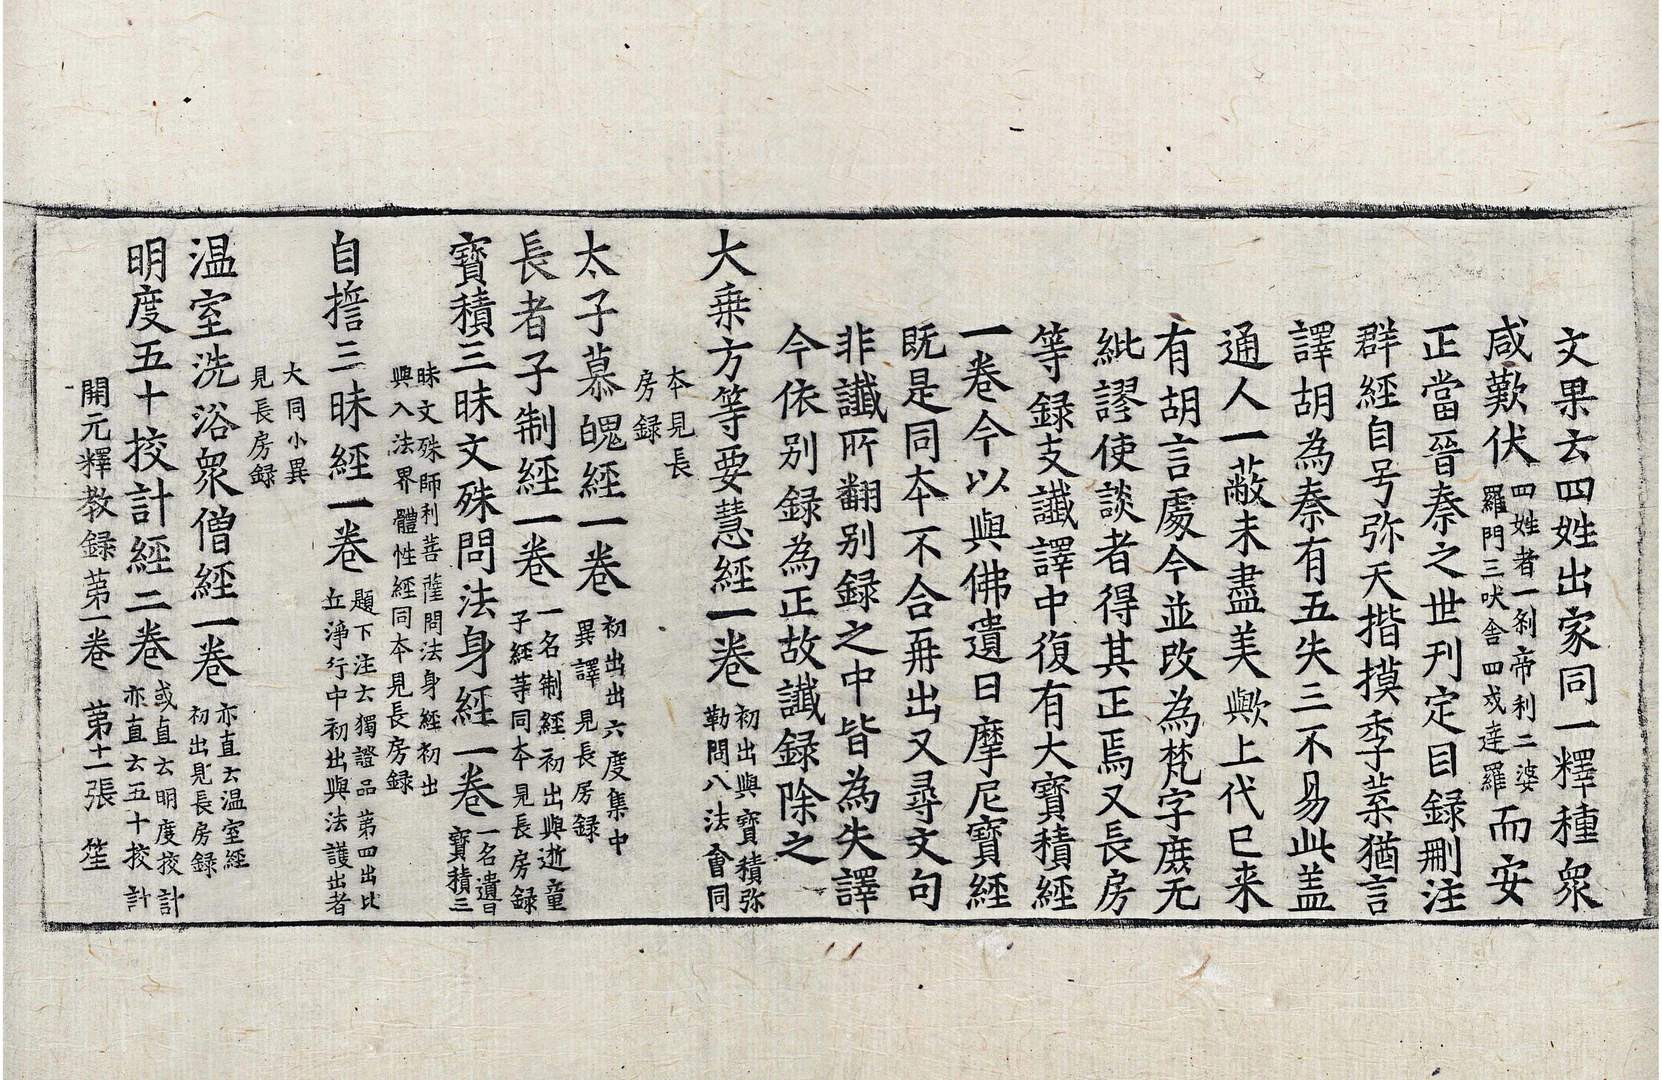 文果云四姓出家同一釋種衆
咸歎伏四姓者一刹帝利二婆羅門三吠舍四戍達羅而安
正當晉秦之世刊定目録刪注
群經自号弥天揩摸季葉猶言
譯胡為秦有五失三不易此盖
通人一蔽未盡美歟上代已来
有胡言處今並改為梵字庶无
紕謬使談者得其正焉又長房
等録支讖譯中復有大寶積經
一卷今以與佛遺日摩尼寶經
既是同本不合再出又尋文句
非讖所翻别録之中皆為失譯
今依别録為正故讖録除之
大乗方等要慧經一卷初出與寶積弥勒問八法會同
本見長房録
太子慕魄經一卷初出出六度集中異譯見長房録
長者子制經一卷一名制經初出與逝童子經等同本見長房録
寶積三昧文殊問法身經一卷一名遺日寶積三
昧文殊師利菩薩問法身經初出與入法界體性經同本見長房録
自誓三昧經一卷題下注云獨證品第四出比丘淨行中初出與法護出者
大同小異見長房録
温室洗浴衆僧經一卷亦直云温室經初出見長房録
明度五十挍計經二卷或直云明度挍計亦直云五十挍計
開元釋教録第一卷　第十一張　笙